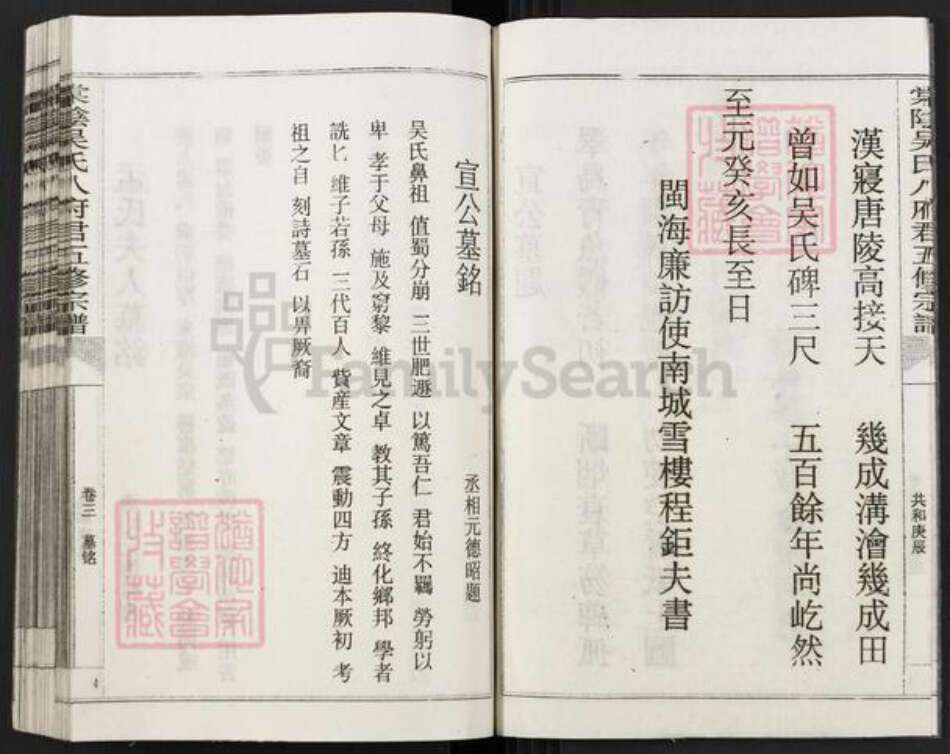 棠陰吳氏八府君五修宗譜
共和庚辰
漢寢唐陵高接天 幾成溝澮幾成田
曾如吴氏碑三尺 五百餘年尚屹然
至元癸亥長至日
閩海廉訪使南城雪樓程鉅夫書
宣公墓銘
丞相元德昭題
吴氏鼻祖 值蜀分崩 三世肥遯 以篤吾仁 君始不羈 勞躬以
卑 孝于父母 施及窮黎 維見之卓 教其子孫 終化鄉邦 學者
詵匕 維子若孫 三代百人 貲産文章 震動四方 迪本厥初 考
祖之自 刻詩墓石 以畀厥裔
棠陰吳氏八府君五修宗譜
卷三 墓铭
FamilySearch